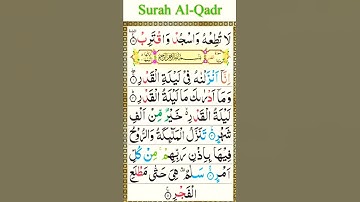 Surah Al-Qadr
لَا تُطِعْهُ وَاسْجُدْ وَاقْتَرِبْ
اِنَّاۤ اَنْزَلْنٰهُ فِیْ لَیْلَةِ الْقَدْرِ
وَمَاۤ اَدْرٰىكَ مَا لَیْلَةُ الْقَدْرِ
لَیْلَةُ الْقَدْرِ خَیْرٌ مِّنْ اَلْفِ
شَهْرٍ تَنَزَّلُ الْمَلٰٓىِٕكَةُ وَالرُّوْحُ
فِیْهَا بِاِذْنِ رَبِّهِمْ مِنْ كُلِّ
اَمْرٍ سَلٰمٌ هِیَ حَتّٰی مَطْلَعِ
الْفَجْرِ